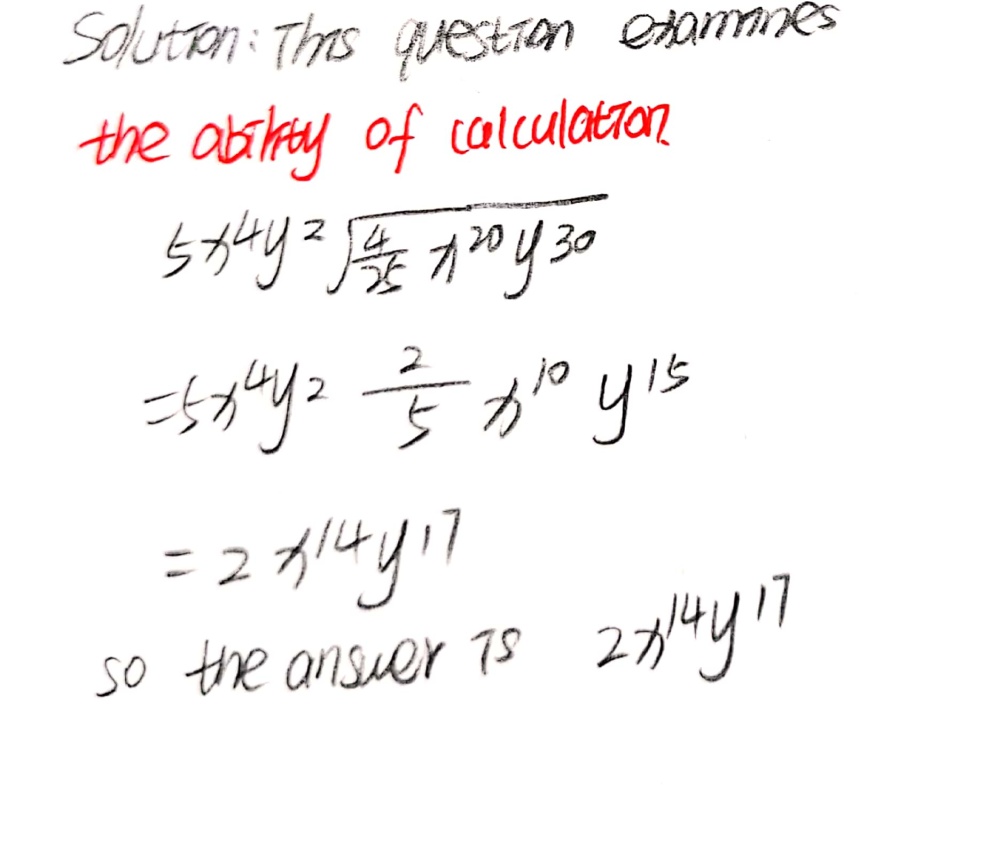 Solution: This question examines
the ability of calculation.
5x⁴y²√(4/25 x²⁰y³⁰)
=5x⁴y² 2/5 x¹⁰ y¹⁵
= 2x¹⁴y¹⁷
so the answer is 2x¹⁴y¹⁷